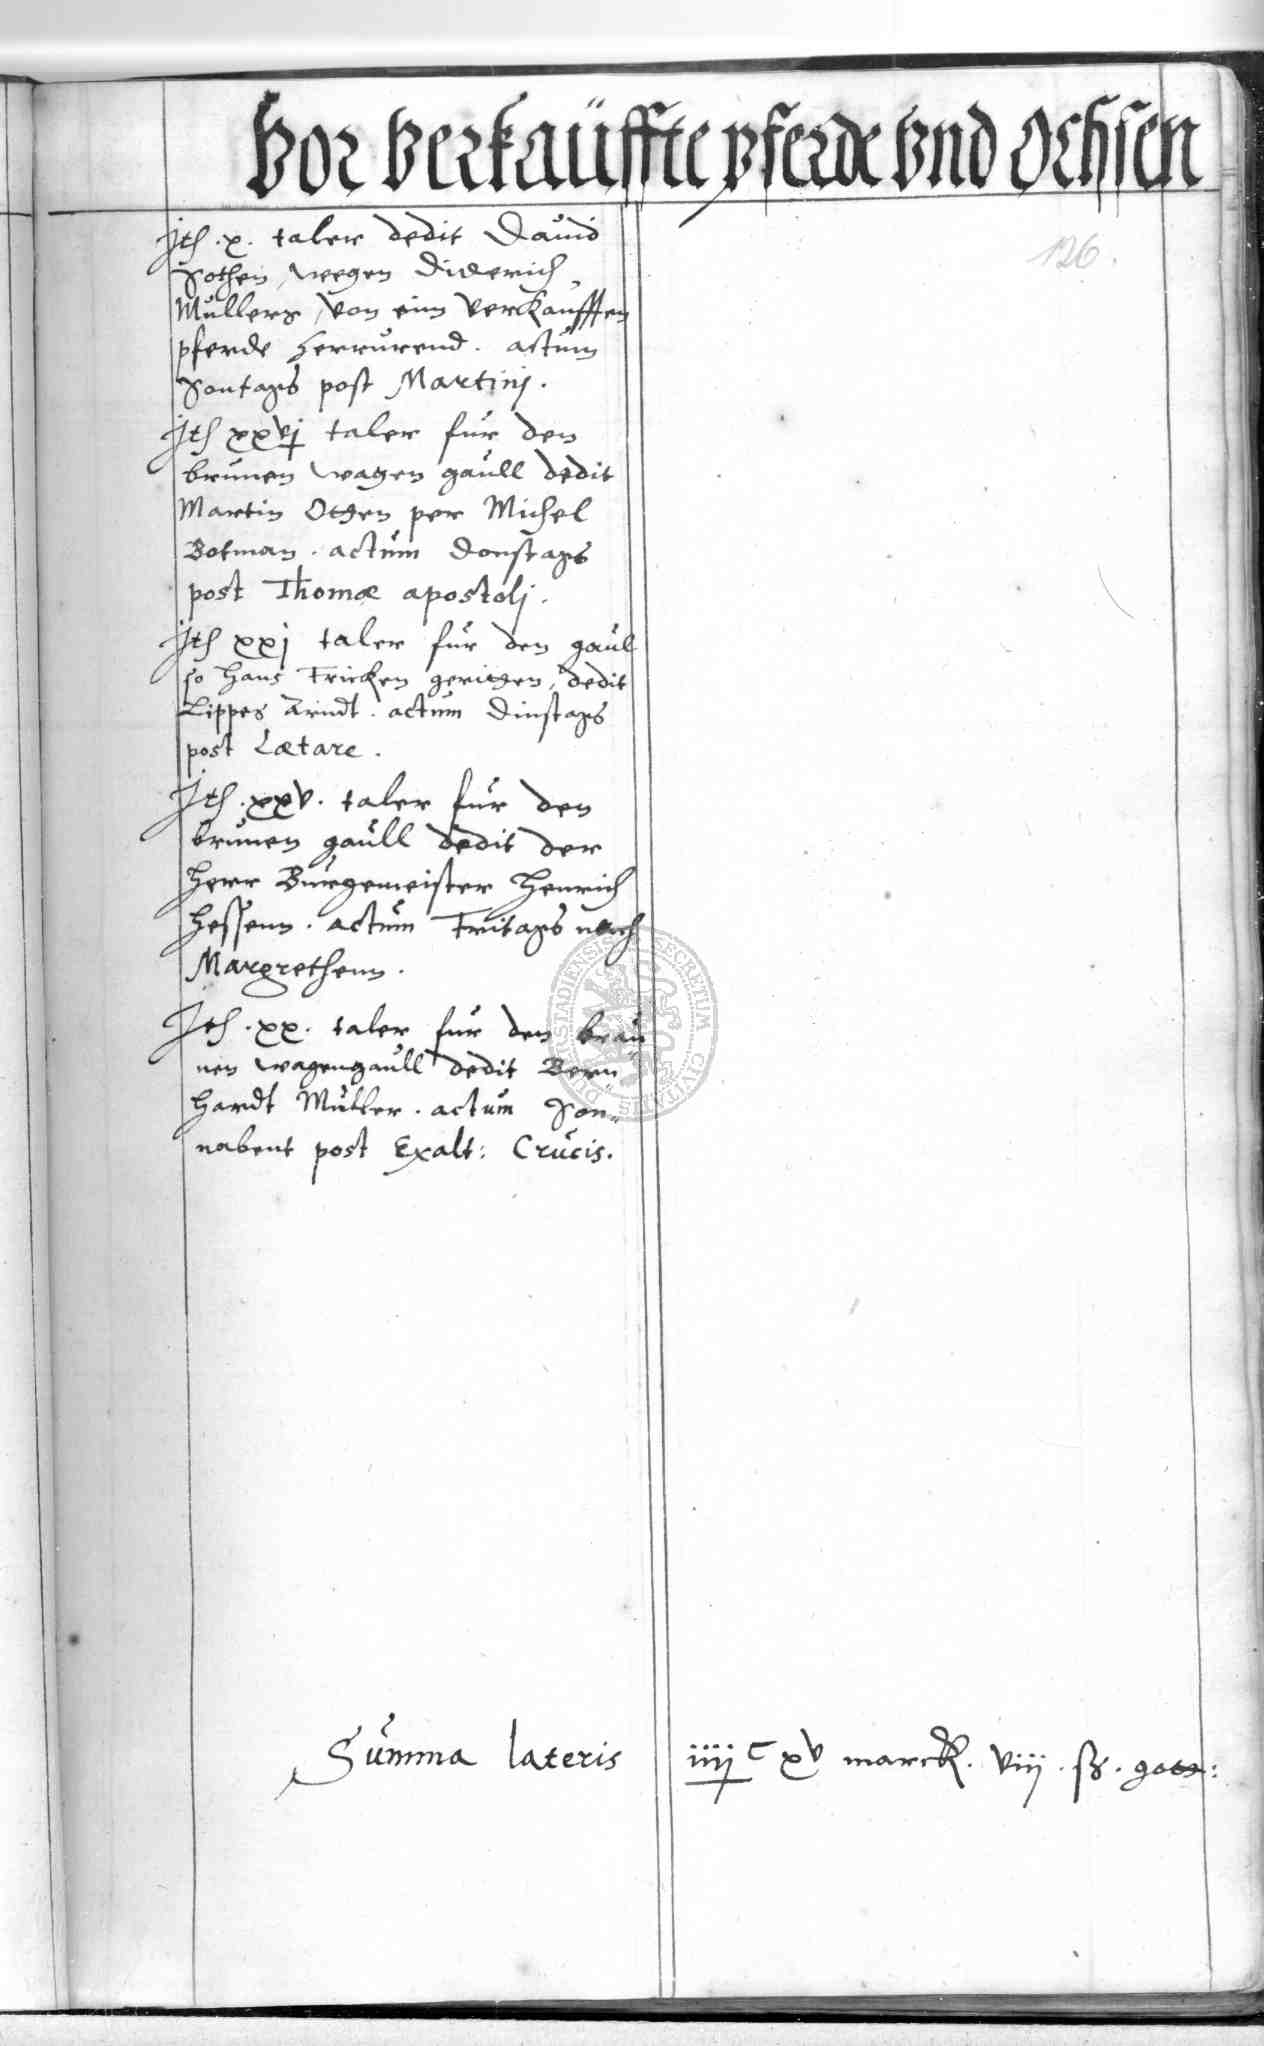 Vor Verkauffte pferde Vnd Ochsen
126.
Jth .x. taler dedit Dauid
Sothen, wegen Diderich
Mullers, von eim verkaufften
pferde herrurend. actum
Sontags post Martinj.
Jth xxvj taler fur den
brunen wagen gaull dedit
Martin Otgen per Michel
Botman. actum Donstags
post Thomæ apostolj.
Jth xxj taler fur den gaul
so Hans Fricken geritgen, dedit
Lippes Arndt. actum Dinstags
post Lætare.
Jth .xxv. taler fur den
brunen gaull dedit der
Herr Burgemeister Henrich
Hessenn. actum Fritags nach
Margrethenn.
Jth .xx. taler fur den brau
nen wagengaull dedit Bern
hardt Muller. actum Son„
nabent post Exalt: Crucis.
SECRETUM CIVITATIS DUDERSTADIENSIS
Summa lateris iiij C xv marck. viij. ß. gott: